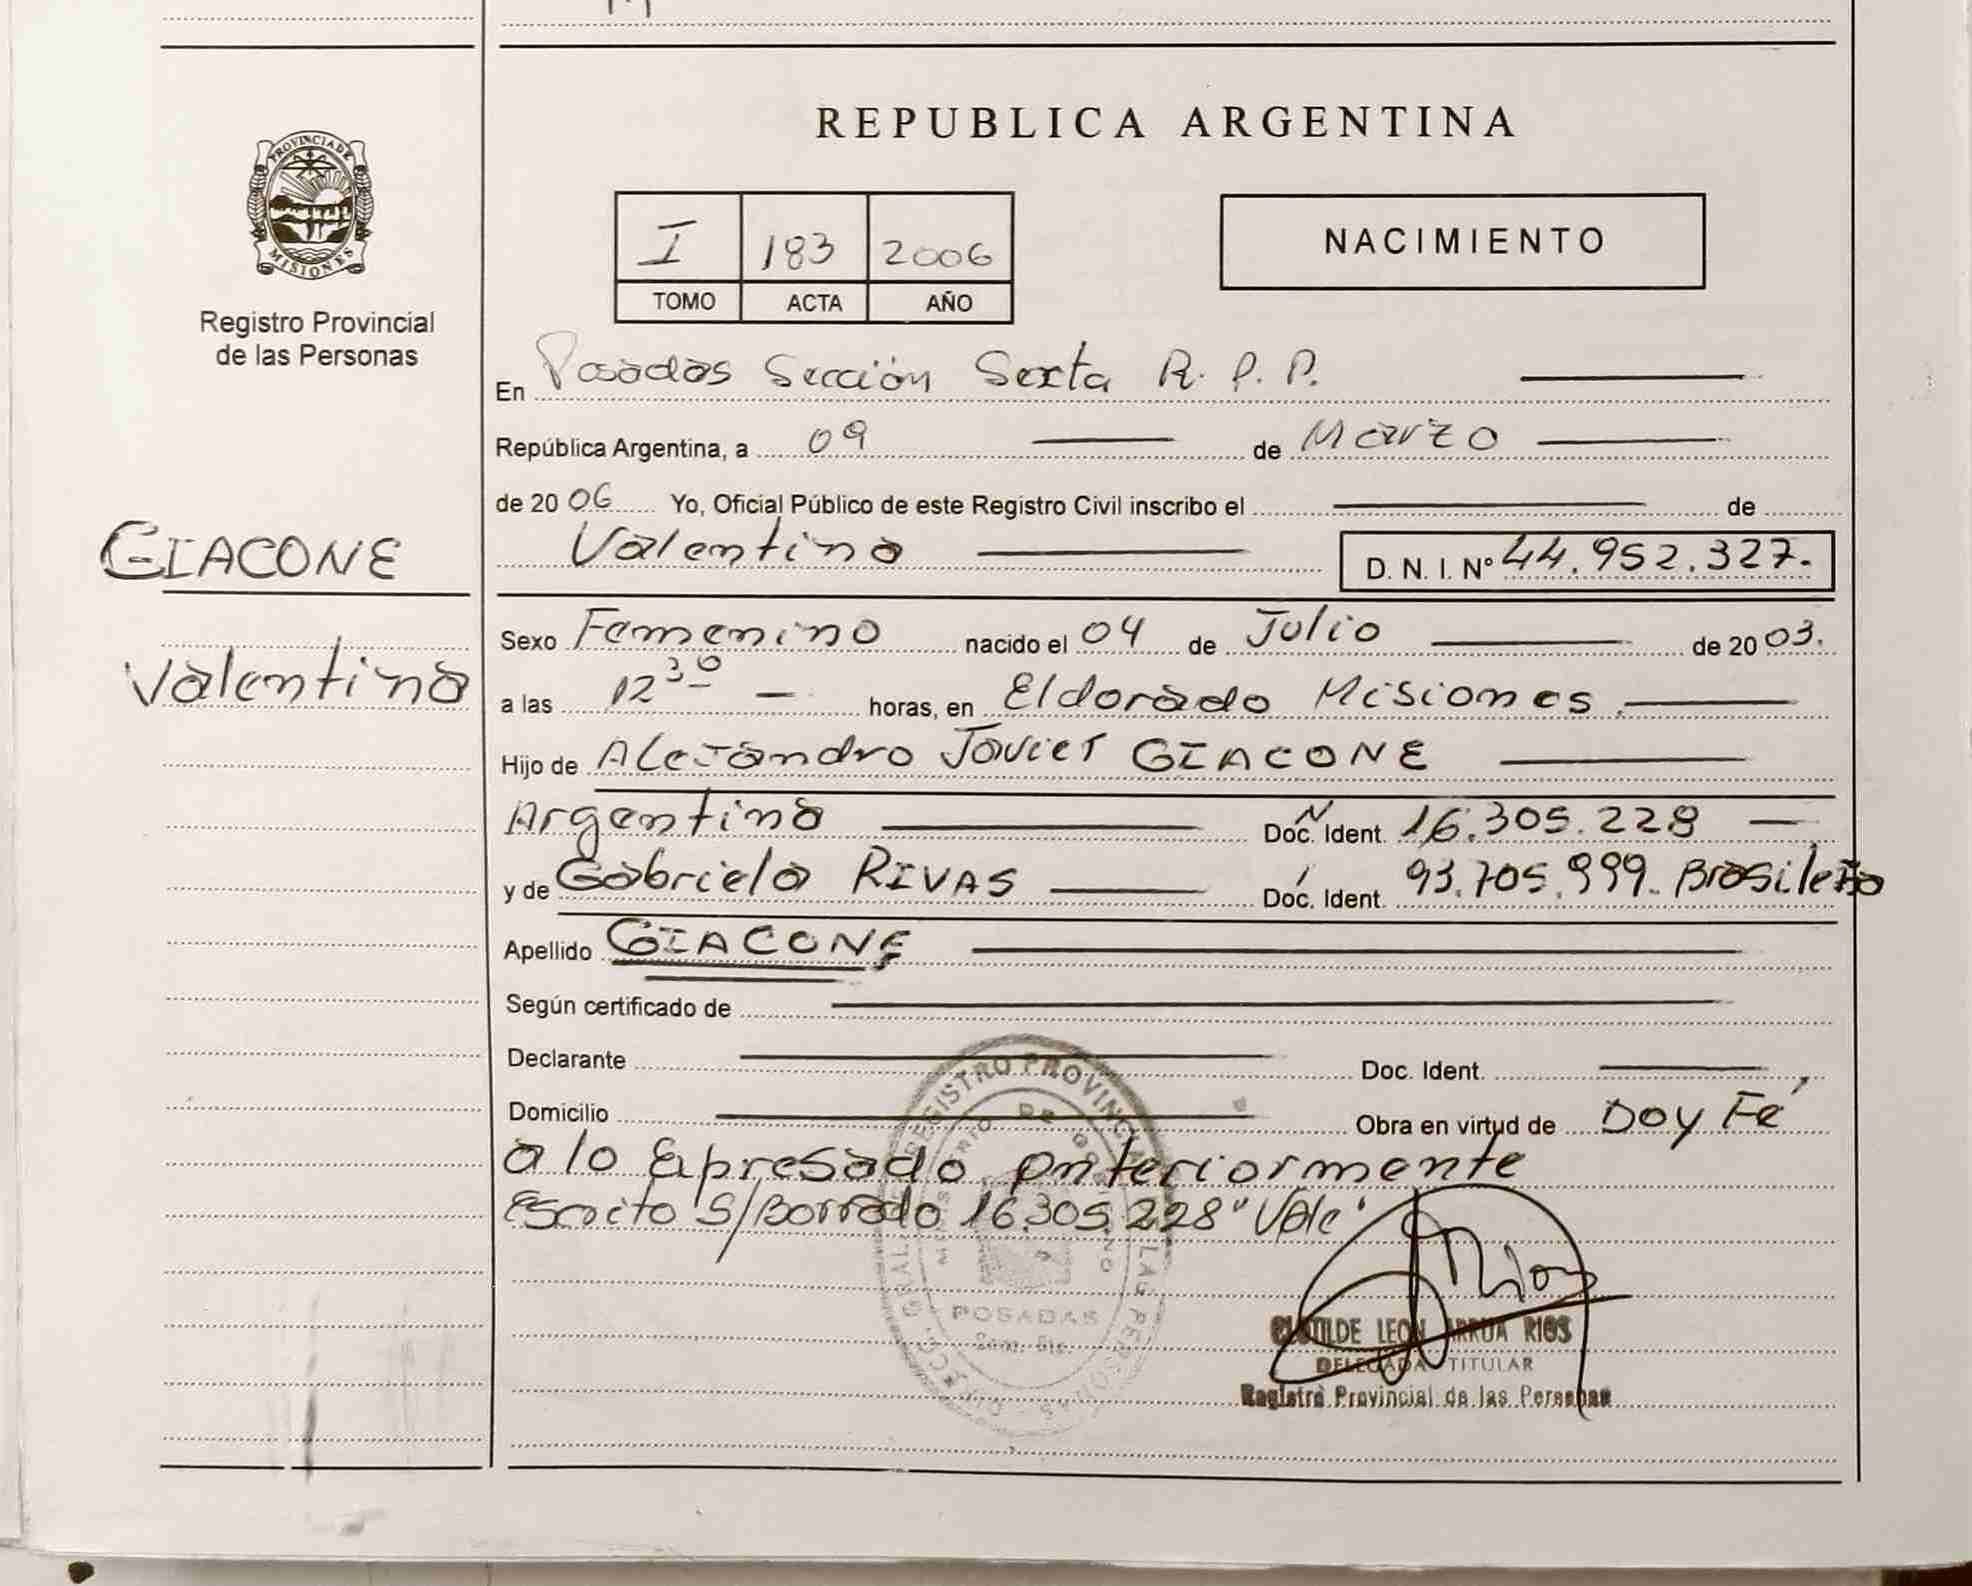 REPUBLICA ARGENTINA
PROVINCIA DE MISIONES
Registro Provincial
de las Personas
I 183 2006
TOMO ACTA AÑO
NACIMIENTO
En Posadas Sección Sexta R. P. P.
República Argentina, a 09 de Marzo
de 20 06 Yo, Oficial Público de este Registro Civil inscribo el de
GIACONE
Valentina
Valentina D. N. I. Nº 44.952.327.
Sexo Femenino nacido el 04 de Julio de 20 03.
a las 12 30 horas, en Eldorado Misiones.
Hijo de Alejandro Javier GIACONE
Argentina Doc. Ident. 16.305.228
y de Gabriela RIVAS Doc. Ident. 93.705.999. Brasileña
Apellido GIACONE
Según certificado de
Declarante Doc. Ident.
Domicilio Obra en virtud de Doy Fé
a lo Expresado anteriormente
Escrito S/Borrado 16.305.228 "Vale"
REGISTRO PROVINCIAL DE LAS PERSONAS
MINISTERIO DE GOBIERNO
POSADAS
CLOTILDE LEON ARRUA RIOS
DELEGADA TITULAR
Registro Provincial de las Personas